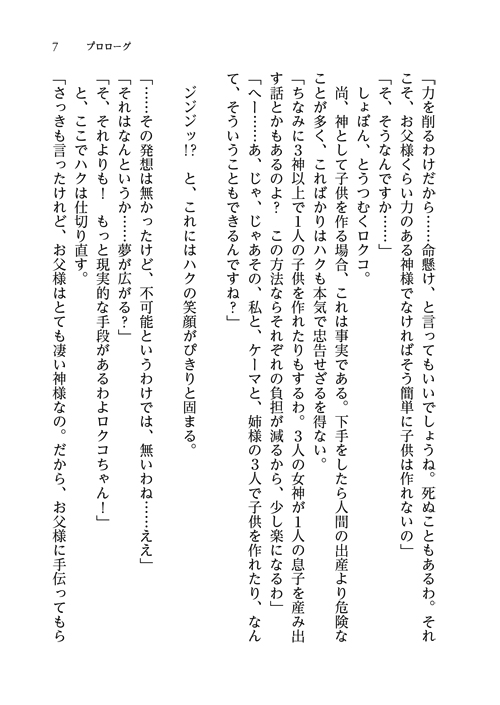 7　プロローグ
「力を削るわけだから……命懸け、と言ってもいいでしょうね。死ぬこともあるわ。それ
こそ、お父様くらい力のある神様でなければそう簡単に子供は作れないの」
「そ、そうなんですか……」
　しょぼん、とうつむくロクコ。
　尚、神として子供を作る場合、これは事実である。下手をしたら人間の出産より危険な
ことが多く、こればかりはハクも本気で忠告せざるを得ない。
「ちなみに３神以上で１人の子供を作れたりもするわ。３人の女神が１人の息子を産み出
す話とかもあるのよ？　この方法ならそれぞれの負担が減るから、少し楽になるわ」
「へー……あ、じゃ、じゃあその、私と、ケーマと、姉様の３人で子供を作れたり、なん
て、そういうこともできるんですね？」
　ジンジンッ!?　と、これにはハクの笑顔がぴきりと固まる。
「……その発想は無かったけど、不可能というわけでは、無いわね……ええ」
「それはなんというか……夢が広がる？」
「そ、それよりも！　もっと現実的な手段があるわよロクコちゃん！」
　と、ここでハクは仕切り直す。
「さっきも言ったけれど、お父様はとても凄い神様なの。だから、お父様に手伝ってもら